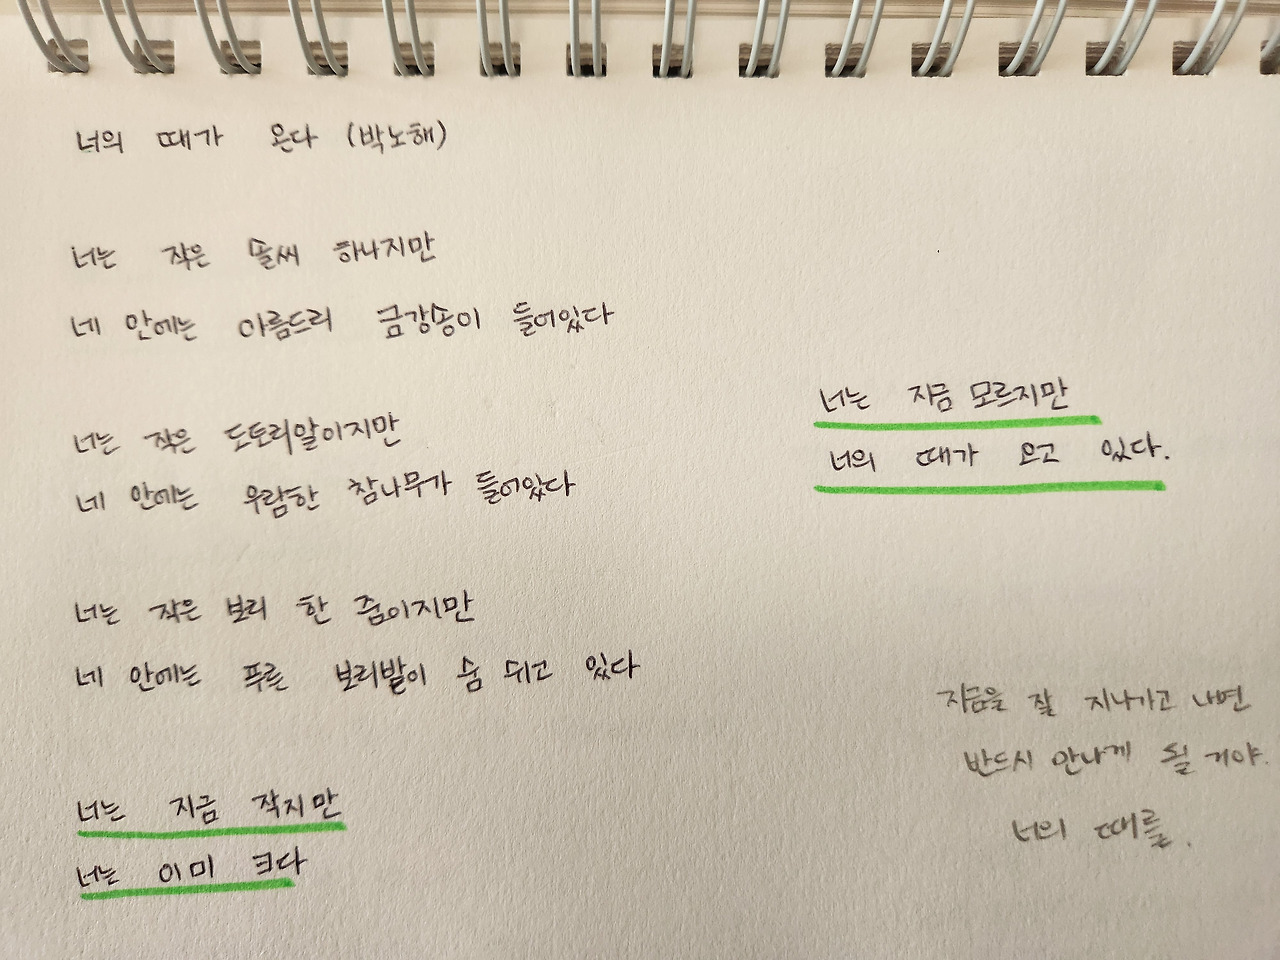 너의 때가 온다 (박노해)
너는 작은 솔씨 하나지만
네 안에는 아름드리 금강송이 들어있다
너는 작은 도토리알이지만
네 안에는 우람한 참나무가 들어있다
너는 작은 보리 한 줌이지만
네 안에는 푸른 보리밭이 숨 쉬고 있다
너는 지금 작지만
너는 이미 크다
너는 지금 모르지만
너의 때가 오고 있다.
지금을 잘 지나가고 나면
반드시 만나게 될 거야.
너의 때를.